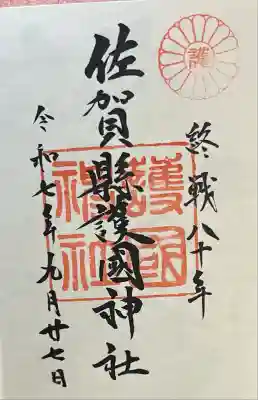 終戦八十年
佐賀縣護國神社
令和七年九月廿七日
護國
神社
護